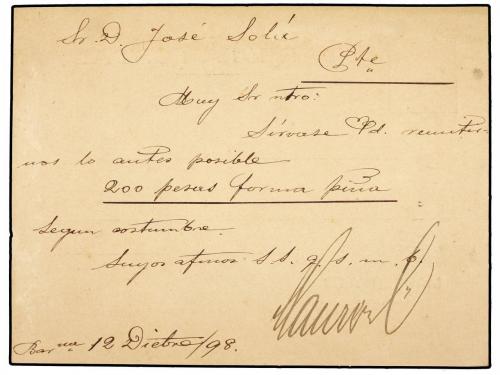 Sr. D. José Solá
Pte
Muy Sr ntro:
Sírvase Vd. remitir-
nos lo antes posible
200 pesas forma piña
segun costumbre.
Suyos afmos S. S. q. s. m. b.
Barna 12 Dicbre/98.